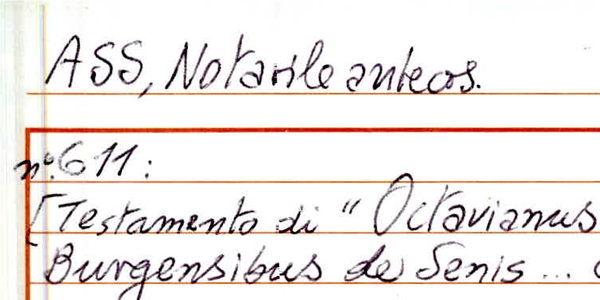 ASS, Notarile antecos.
n.° 611:
[Testamento di "Octavianus
Burgensibus de Senis ...